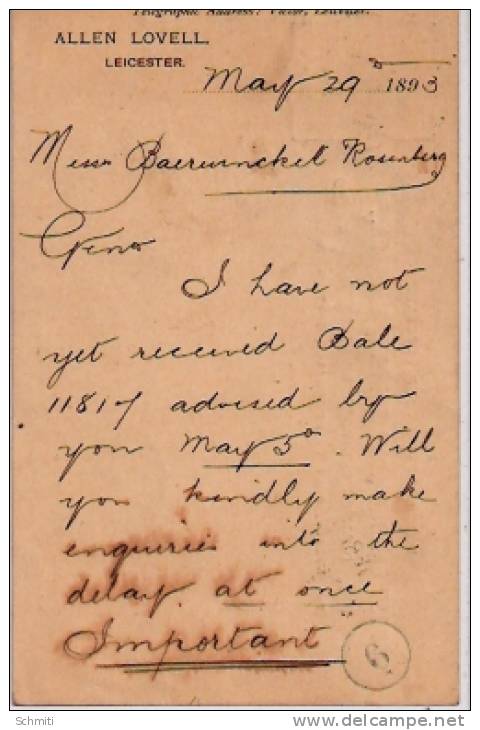 Telegraphic Address: Victor, Leicester.
ALLEN LOVELL,
LEICESTER.
May 29 1893
Messrs Baerwinckel Rosenberg
Gents
I have not
yet received Bale
11817 advised by
you May 5º. Will
you kindly make
enquiries into the
delay at once
Important
6
Schmiti
delcampe.net